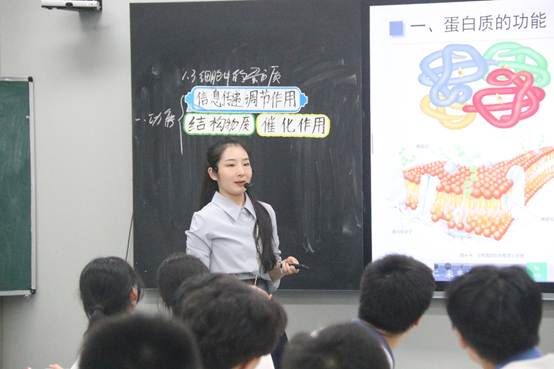 1.3 细胞中的蛋白质
信息传递 调节作用
一.功能
结构物质 催化作用
一、蛋白质的功能